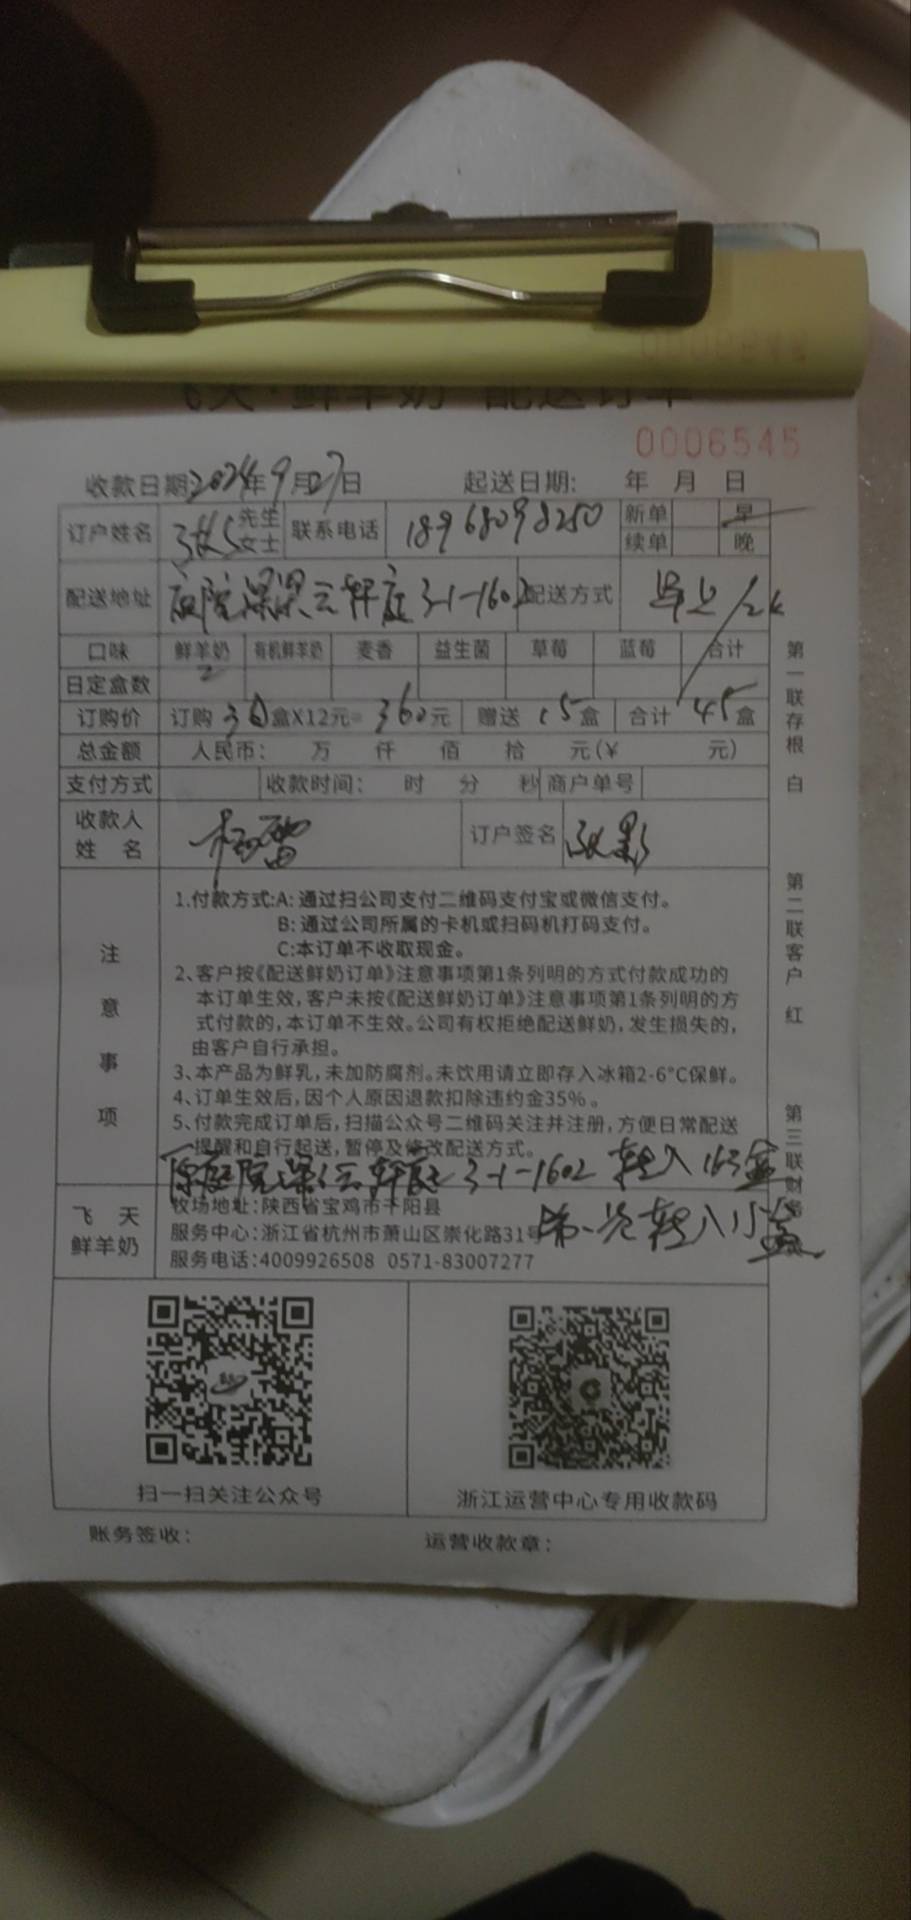 飞天·鲜羊奶 配送订单
0006545
收款日期: 2024年9月27日 起送日期: 年 月 日
订户姓名 张 先生 女士 联系电话 18968098250 新单 早
续单 晚
配送地址 云轩庭3-1-1602 配送方式 早上
口味 鲜羊奶 有机鲜羊奶 麦香 益生菌 草莓 蓝莓 合计
日定盒数 2
订购价 订购30盒X12元=360元 赠送15盒 合计45盒
总金额 人民币: 万 仟 佰 拾 元(¥ 元)
支付方式 收款时间: 时 分 秒 商户单号
收款人姓名 杨雷 订户签名 张影
注意事项
1.付款方式:A: 通过扫公司支付二维码支付宝或微信支付。
B: 通过公司所属的卡机或扫码机打码支付。
C:本订单不收取现金。
2、客户按《配送鲜奶订单》注意事项第1条列明的方式付款成功的
本订单生效,客户未按《配送鲜奶订单》注意事项第1条列明的方
式付款的,本订单不生效。公司有权拒绝配送鲜奶,发生损失的,
由客户自行承担。
3、本产品为鲜乳,未加防腐剂。未饮用请立即存入冰箱2-6°C保鲜。
4、订单生效后,因个人原因退款扣除违约金35%。
5、付款完成订单后,扫描公众号二维码关注并注册,方便日常配送
提醒和自行起送,暂停及修改配送方式。
原庭院深深云轩庭3-1-1602 转入163盒
飞天鲜羊奶
牧场地址:陕西省宝鸡市千阳县
服务中心:浙江省杭州市萧山区崇化路31号
第一次转入
服务电话:4009926508 0571-83007277
扫一扫关注公众号
浙江运营中心专用收款码
账务签收:
运营收款章:
第一联存根 白
第二联客户 红
第三联财务